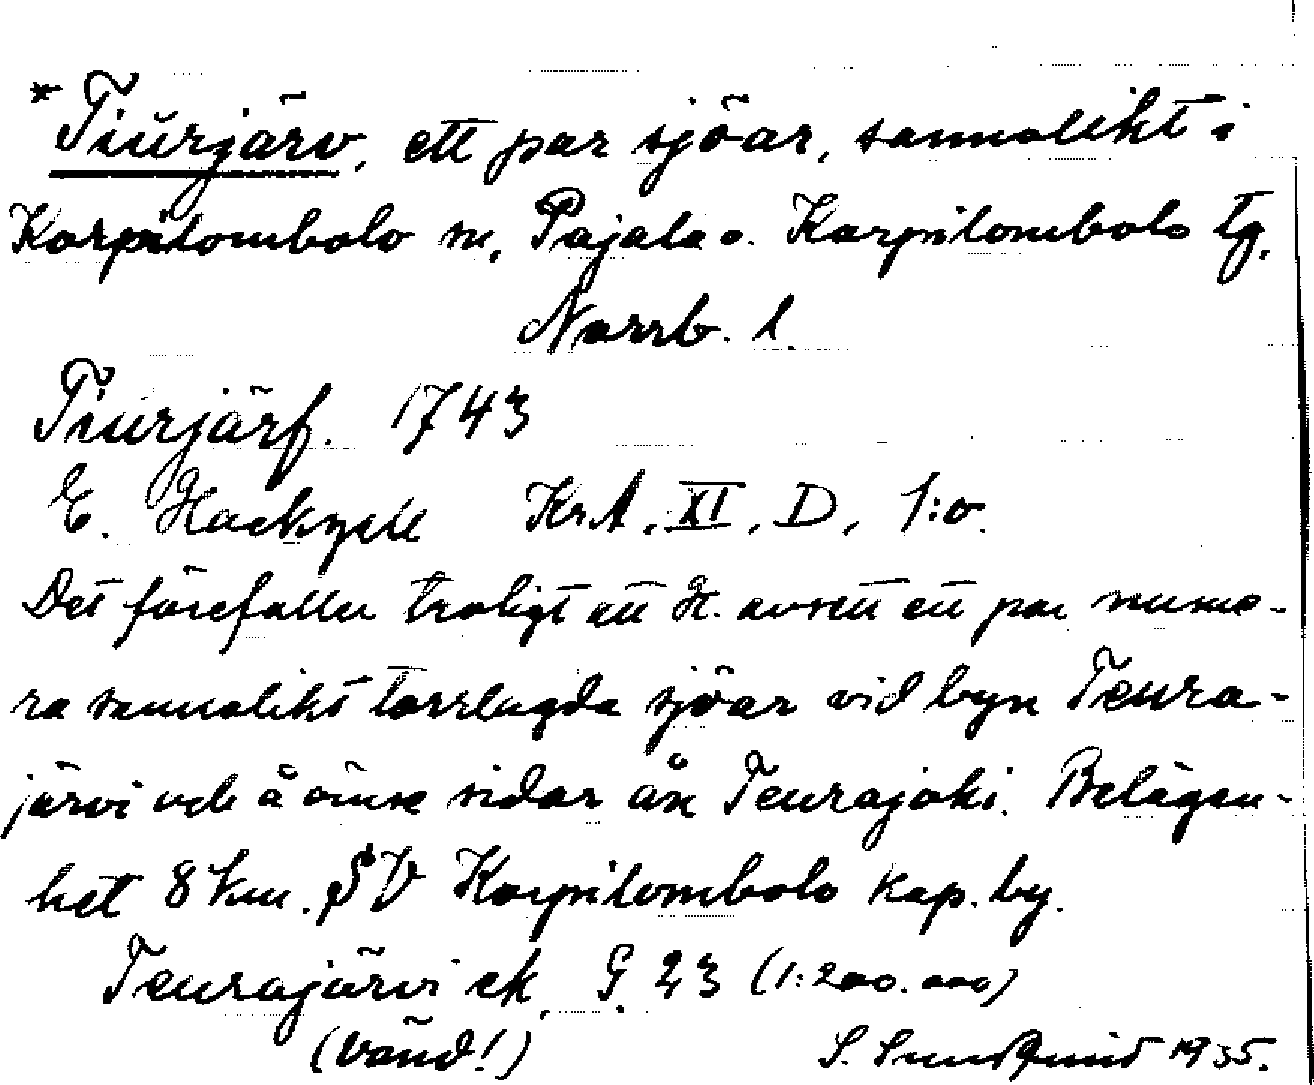 *Tiurjärv, ett par sjöar, sannolikt i
Korpilombolo sn, Pajala o. Korpilombolo tg,
Norrb. l.
Tiurjärf. 1743
E. Hackzell KrA, XI, D, 1:o.
Det förefaller troligt att H. avsett ett par nume-
ra sannolikt torrlagda sjöar vid byn Teura-
järvi och å ömse sidor ån Teurajoki. Belägen-
het 8 km. SV Korpilombolo kap. by.
Teurajärvi ek. G. 23 (1:200.000)
(Vänd!) S. Sundqvist 1935.